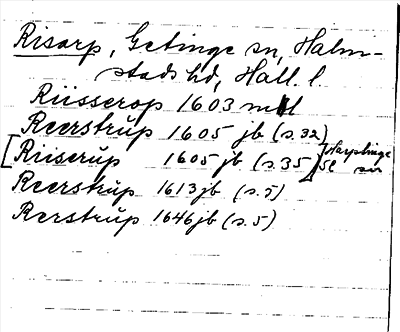 Risarp, Getinge sn, Halm-
stads hd, Hall. l.
Riisserop 1603 mtl
Reerstrup 1605 jb (s. 32)
[Riiserup 1605 jb (s. 35)] Harplinge sn
Reerstrup 1613 jb (s. 5)
Rerstrup 1646 jb (s. 5)